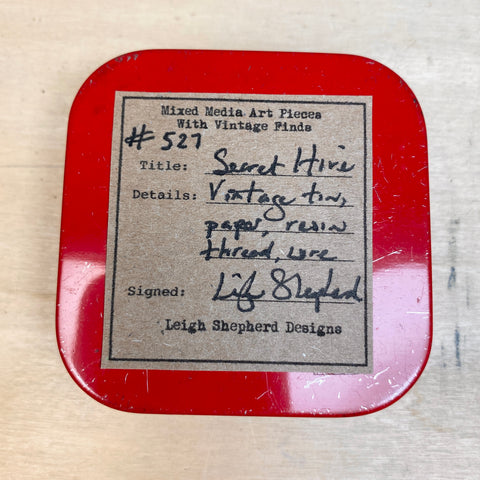 Mixed Media Art Pieces
With Vintage Finds
# 527
Title: Secret Hive
Details: Vintage tin,
paper, resin
thread, wire
Signed: Leigh Shepherd
Leigh Shepherd Designs